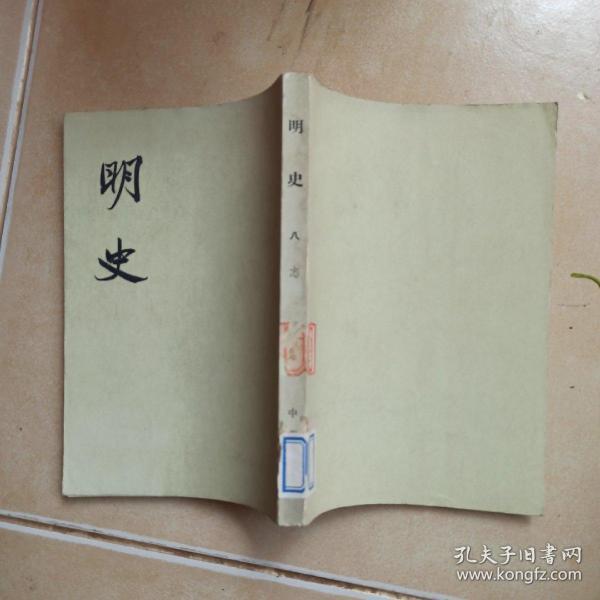 明史
明史
八
志
中
孔夫子旧書网
www.kongfz.com